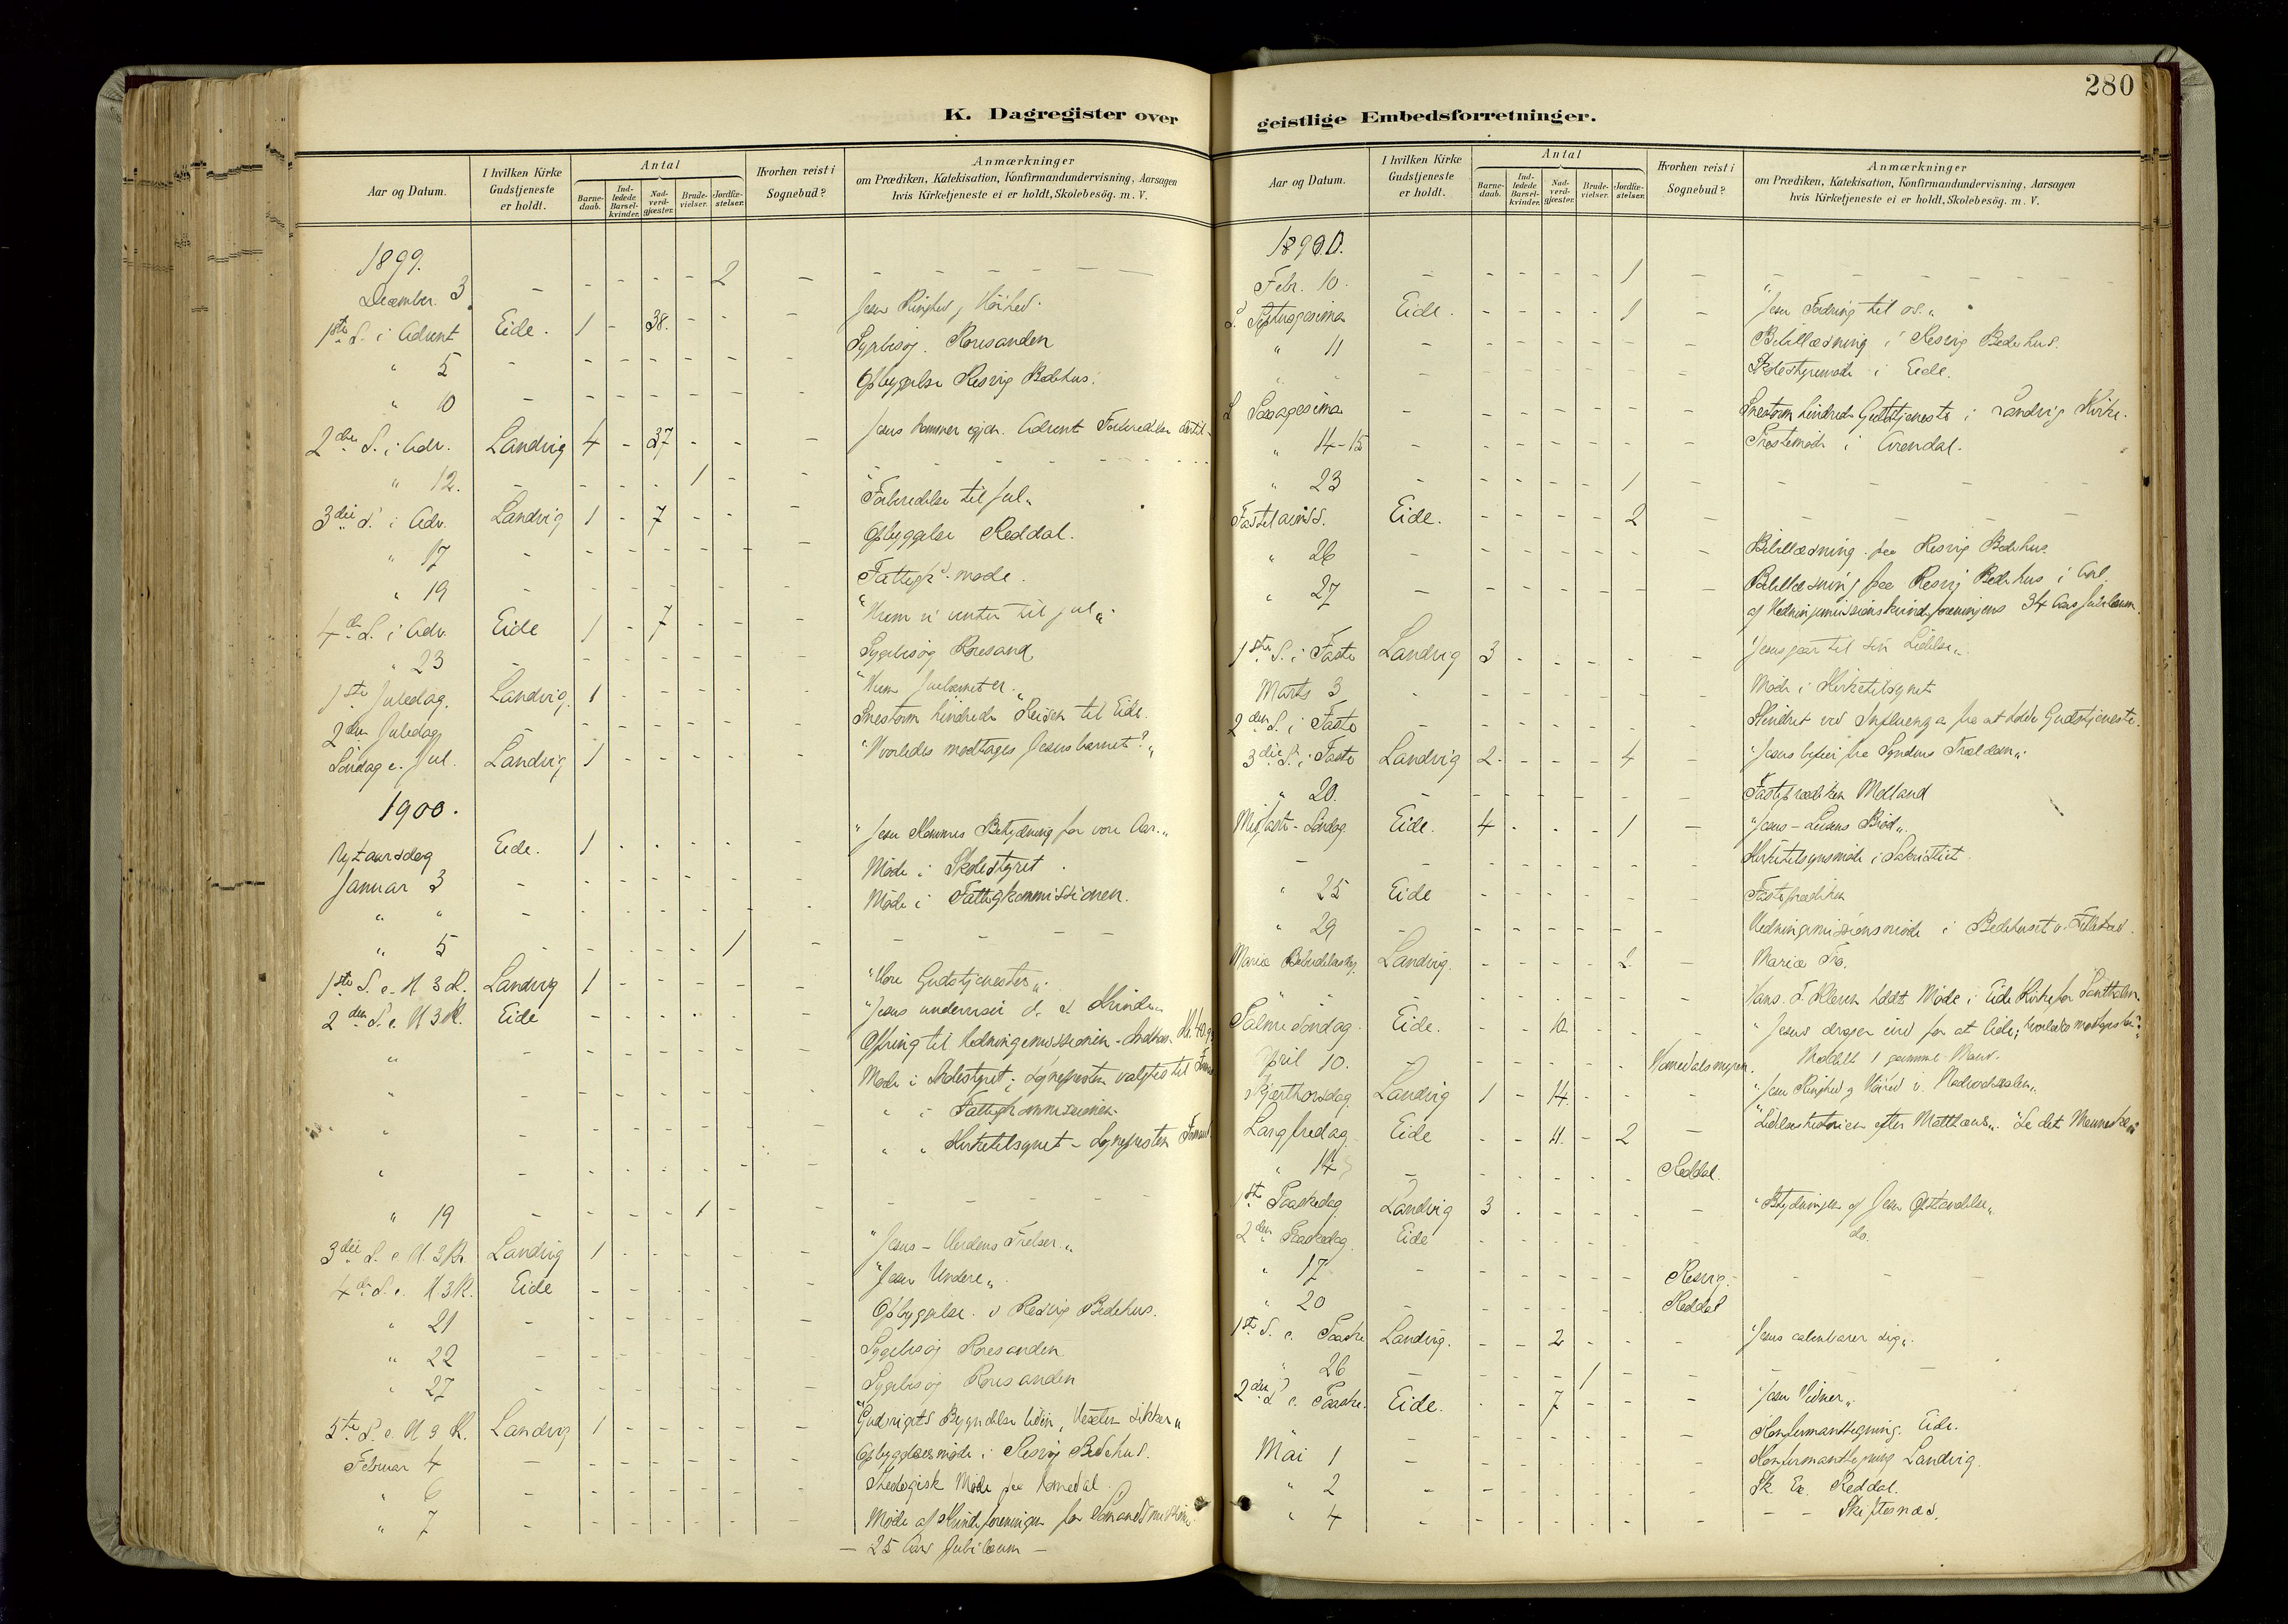 K. Dagregister over
Aar og Datum. I hvilken Kirke Gudstjeneste er holdt. Antal Barnedaab. Indledede Barselkvinder. Nadverdgjæster. Brudevielser. Jordfæstelser. Hvorhen reist i Sognebud? Anmærkninger om Prædiken, Katekisation, Konfirmandundervisning, Aarsagen hvis Kirketjeneste ei er holdt, Skolebesög. m. V.
1899.
December. 3 - - - - - 2 -
1ste S. i Advent Eide. 1 - 38. - - - Jesu Ringhed og Höihed.
" 5 - - - - - - - Sygebesög. Roresanden
" 10 - - - - - - - Opbyggelse Resvig Bedehus.
2den S. i Adv. Landvig 4 - 37 - - - Jesus kommer igjen. Advent Forberedelse dertil.
" 12. - - - - 1 - -
3die S. i Adv. Landvig 1 - 7 - - - "Forberedelse til Jul"
" 17 - - - - - - - Opbyggelse Reddal.
" 19 - - - - - - - Fattigk. möde.
4de S. i Adv. Eide 1 - 7 - - - "Hvem vi venter til Jul".
" 23 - - - - - - - Sygebesög Roresand
1ste Juledag. Landvig. 1 - - - - - "Hvem Julebarnet er.
2den Juledag - - - - - - - Snestorm hindrede Reisen til Eide.
Söndag e. Jul. Landvig 1 - - - - "Hvorledes modtages Jesusbarnet?"
1900.
Nytaarsdag Eide. 1 - - - - - "Jesu Navnes Betydning for vore Aar."
Januar 3 - - - - - - - Möde i Skolestyret
" " - - - - - - - Möde i Fattigkommissionen.
" 5 - - - - - 1 -
1ste S. e. H 3 K. Landvig 1 - - - - - "Vore Gudstjenester".
2den S. e. H 3 K. Eide - - - - - - "Jesus underviser
" Ofring til Hedningemissionen
" Möde i Skolestyret; Sognepresten valgtes til
" " i Fattigkommissionen
" " " Kirketilsynet - Sognepresten
" 19 - - - - 1 - -
3die S. e. H. 3 K. Landvig 1 - - - - - "Jesus - Verdens Frelser."
4de S. e. H 3 K. Eide - - - - - - "Jesu Undere"
" 21 - - - - - - - Opbyggelse. i Resvig Bedehus.
" 22 - - - - - - - Sygebesög Roresanden
" 27 - - - - - - - Sygebesög Roresanden
5te S. e. H 3 K. Landvig 1 - - - - - "Gudsrigets Begyndelse liden, Væxten sikker"
Februar 4 - - - - - - - Opbyggelsesmöde i Resvig Bedehus.
" 6 - - - - - - - Theologisk Möde paa Homedal.
" 7 - - - - - - - Möde af Kvindeforeningen for Sömandsmission
- 25 Aars Jubilæum -
280
geistlige Embedsforretninger.
Aar og Datum. I hvilken Kirke Gudstjeneste er holdt. Antal Barnedaab. Indledede Barselkvinder. Nadverdgjæster. Brudevielser. Jordfæstelser. Hvorhen reist i Sognebud? Anmærkninger om Prædiken, Katekisation, Konfirmandundervisning, Aarsagen hvis Kirketjeneste ei er holdt, Skolebesög. m. V.
1900.
Febr. 10. - - - - - 1 -
S. Septuagesima Eide. - - - - 1 - "Jesu Fordring til os."
" 11 - - - - - - - Bibellæsning i Resvig Bedehus.
" - - - - - - - Skolestyremöde i Eide.
S Sexagesima - - - - - - - Snestorm hindrede Gudstjeneste i Landvig Kirke.
" 14-15 - - - - - - - Prestemöde i Arendal.
" 23 - - - - - 1 -
Fastelavnss. Eide. - - - - 2 -
" 26 - - - - - - - Bibellæsning. paa Resvig Bedehus.
" 27 - - - - - - - Bibellæsning paa Resvig Bedehus i Anl.
af Hedningemissionskvindeforeningens 34 Aars Jubilæum.
1ste S. i Faste Landvig 3 - - - - - "Jesus gaar til sin Lidelse".
Marts 3 - - - - - - - Möde i Kirketilsynet
2den S. i Faste - - - - - - Hindret ved Influenza fra at holde Gudstjeneste.
3die S. i Faste Landvig 2 - - - 4 - "Jesus befrier fra Syndens Trældom".
" 20. - - - - - - - Fasteprædiken Molland
Midfaste-Söndag. Eide. 4 - - - 1 - "Jesus - Livsens Bröd".
- - - - - - - Kirketilsynsmöde i Sakristiet.
" 25 Eide - - - - - - Fasteprædiken
" 29 - - - - - - - Hedningemissionsmöde i Bedehuset v.
Mariæ Bebudelsesdag. Landvig. - - - - 2 - Mariæ Tro.
" " - - - - - - - Hans. holdt Möde i Eide Kirke for
Palmesöndag. Eide. - - 10. - - - "Jesus drager ind for at lide; hvorledes modtages han?"
April 10. - - - - - - Homedalsmyren. Meddelt 1 gammel Mand.
Skjærthorsdag. Landvig 1 - 14. - - - "Jesu Ringhed og Höihed i Nadverdsalen"
Langfredag. Eide - - 11. - 2 - "Lidelseshistorien efter Matthæus". "Se det Menneske"
" 14 - - - - - - Reddal.
1ste Paaskedag Landvig 3 - - - - - "Betydningen af Jesu Opstandelse"
2den Paaskedag. Eide - - - - - - do.
" 17 - - - - - - Resvig.
" 20 - - - - - - Reddal
1ste S. e. Paaske Landvig. - - 2 - - - "Jesus aabenbarer sig".
" 26 - - - - 1 - -
2den S e. Paaske. Eide. - - 7 - - - "Jesu Vidner"
- - - - - - - Konfirmandtegning. Eide.
Mai 1 - - - - - - - Konfirmandtegning Landvig.
" 2 - - - - - - - Sk. Ex. Reddal.
" 4 - - - - - - - - - Skiftenæs.